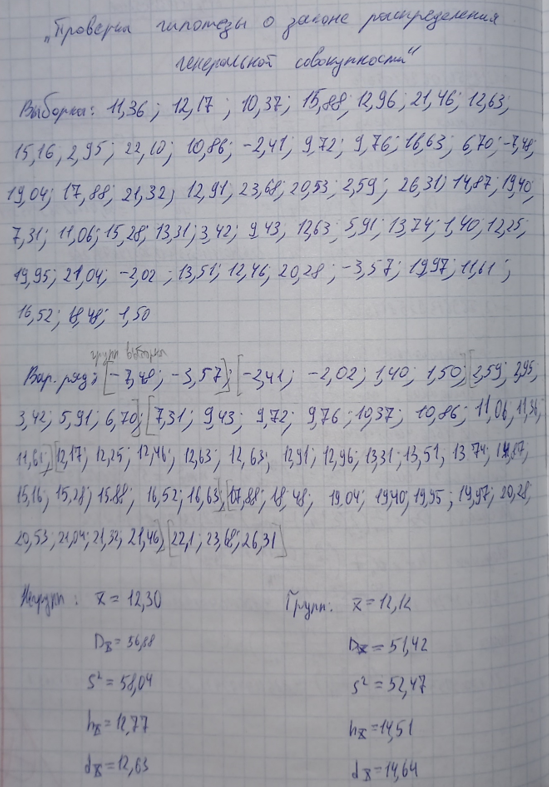 „Проверка гипотезы о законе распределения
генеральной совокупности“
Выборка: 11,36; 12,17; 10,37; 15,88; 12,96; 21,46; 12,63;
15,16; 2,95; 22,10; 10,86; -2,41; 9,72; 9,76; 16,63; 6,70; -7,48;
19,04; 17,88; 21,32; 12,91; 23,68; 20,53; 2,59; 26,31; 14,87; 19,40;
7,31; 11,06; 15,28; 13,31; 3,42; 9,43; 12,63; 5,91; 13,74; 1,40; 12,25;
19,95; 21,04; -2,02; 13,51; 12,46; 20,28; -3,57; 19,97; 11,61;
16,52; 18,48; 1,50
групп выборка
Вар. ряд: [-7,48; -3,57]; [-2,41; -2,02; 1,40; 1,50]; [2,59; 2,95,
3,42; 5,91; 6,70]; [7,31; 9,43; 9,72; 9,76; 10,37; 10,86; 11,06; 11,36;
11,61]; [12,17; 12,25; 12,46; 12,63; 12,63; 12,91; 12,96; 13,31; 13,51, 13,74; 14,87;
15,16; 15,28; 15,88; 16,52; 16,63]; [17,88; 18,48; 19,04; 19,40; 19,95; 19,97; 20,28;
20,53; 21,04; 21,32; 21,46]; [22,1; 23,68; 26,31]
Негрупп: x̅ = 12,30
Групп: x̅ = 12,12
Dx̅ = 56,88
Dx̅ = 51,42
S² = 58,04
S² = 52,47
hx̅ = 12,77
hx̅ = 14,51
dx̅ = 12,63
dx̅ = 14,64